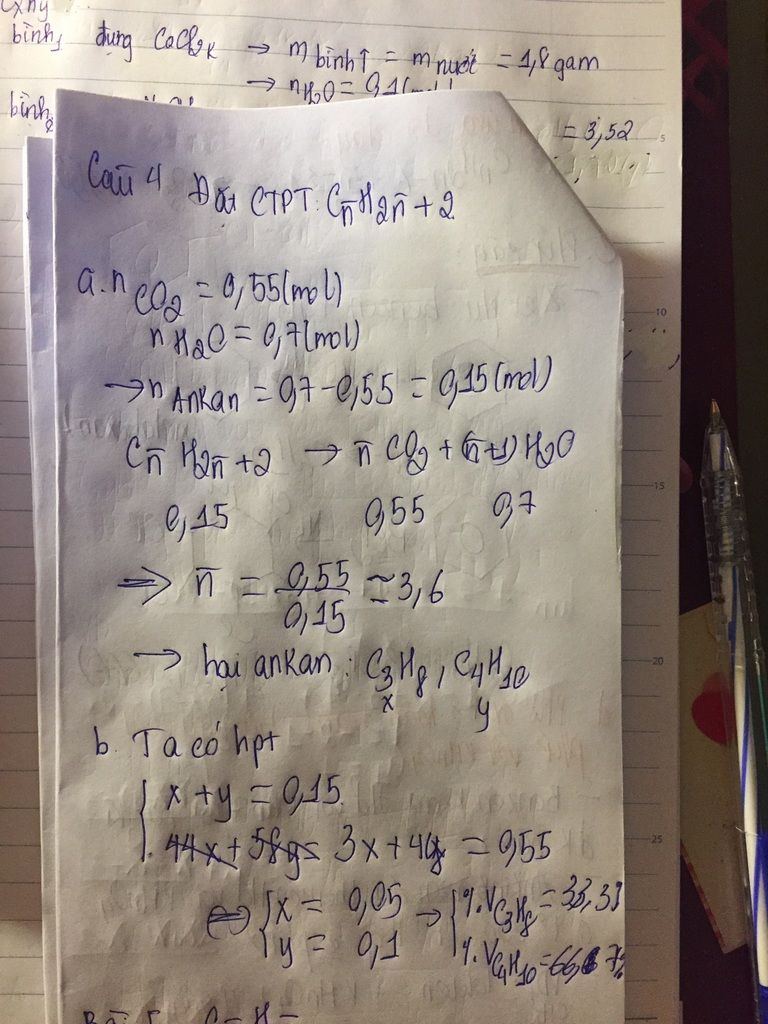 CxHy
bình1 đựng CaCl2K → m bình↑ = m nước = 1,8 gam
→ nH2O = 0,1 (mol)
bình2
= 3,52
Câu 4 Đặt CTPT: Cn̄H2n̄+2
a. nCO2 = 0,55(mol)
nH2O = 0,7(mol)
→ n Ankan = 0,7 - 0,55 = 0,15 (mol)
Cn̄ H2n̄+2 → n̄ CO2 + (n̄+1) H2O
0,15 0,55 0,7
⇒ n̄ = 0,55/0,15 ≃ 3,6
→ hai ankan : C3H8, C4H10
x y
b. Ta có hpt
x + y = 0,15
44x + 58y = 3x + 4y = 0,55
⇔ { x = 0,05 → { %VC3H8 = 33,33
y = 0,1 %VC4H10 = 66,67%